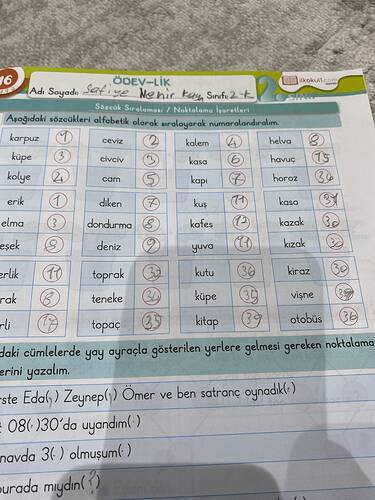 16
ÖDEV-LİK
ilkokul1.com
Adı Soyadı: Safiye Nemir Kay Sınıfı: 2-K
Sözcük Sıralaması / Noktalama İşaretleri
Aşağıdaki sözcükleri alfabetik olarak sıralayarak numaralandıralım.
karpuz 1 ceviz 2 kalem 4 helva 8
küpe 3 civciv 3 kasa 6 havuç 15
kolye 2 cam 5 kapı 7 horoz 34
erik 1 diken 7 kuş 11 kasa
elma 3 dondurma 8 kafes 12 kazak 30
eşek 8 deniz 9 yuva 11 kızak
erlik 11 toprak kutu 36 kiraz 30
rak 8 teneke 34 küpe 35 vişne
rli 17 topaç 35 kitap 39 otobüs 36
daki cümlelerde yay ayraçla gösterilen yerlere gelmesi gereken noktalama
erini yazalım.
rste Eda(,) Zeynep(,) Ömer ve ben satranç oynadık(.)
t 08(.)30'da uyandım(.)
navda 3(.) olmuşum(.)
burada mıydın(?)